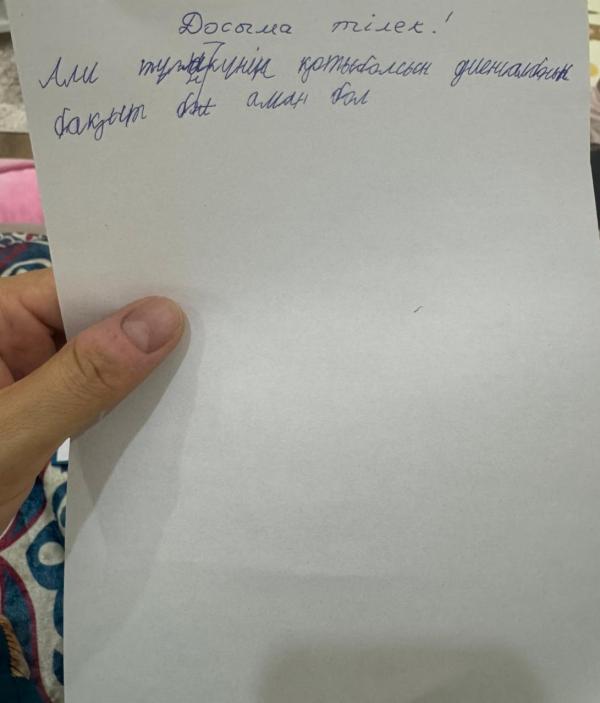 Досыма тілек!
Али туған күнің құтыболсын
бақыт аман бол